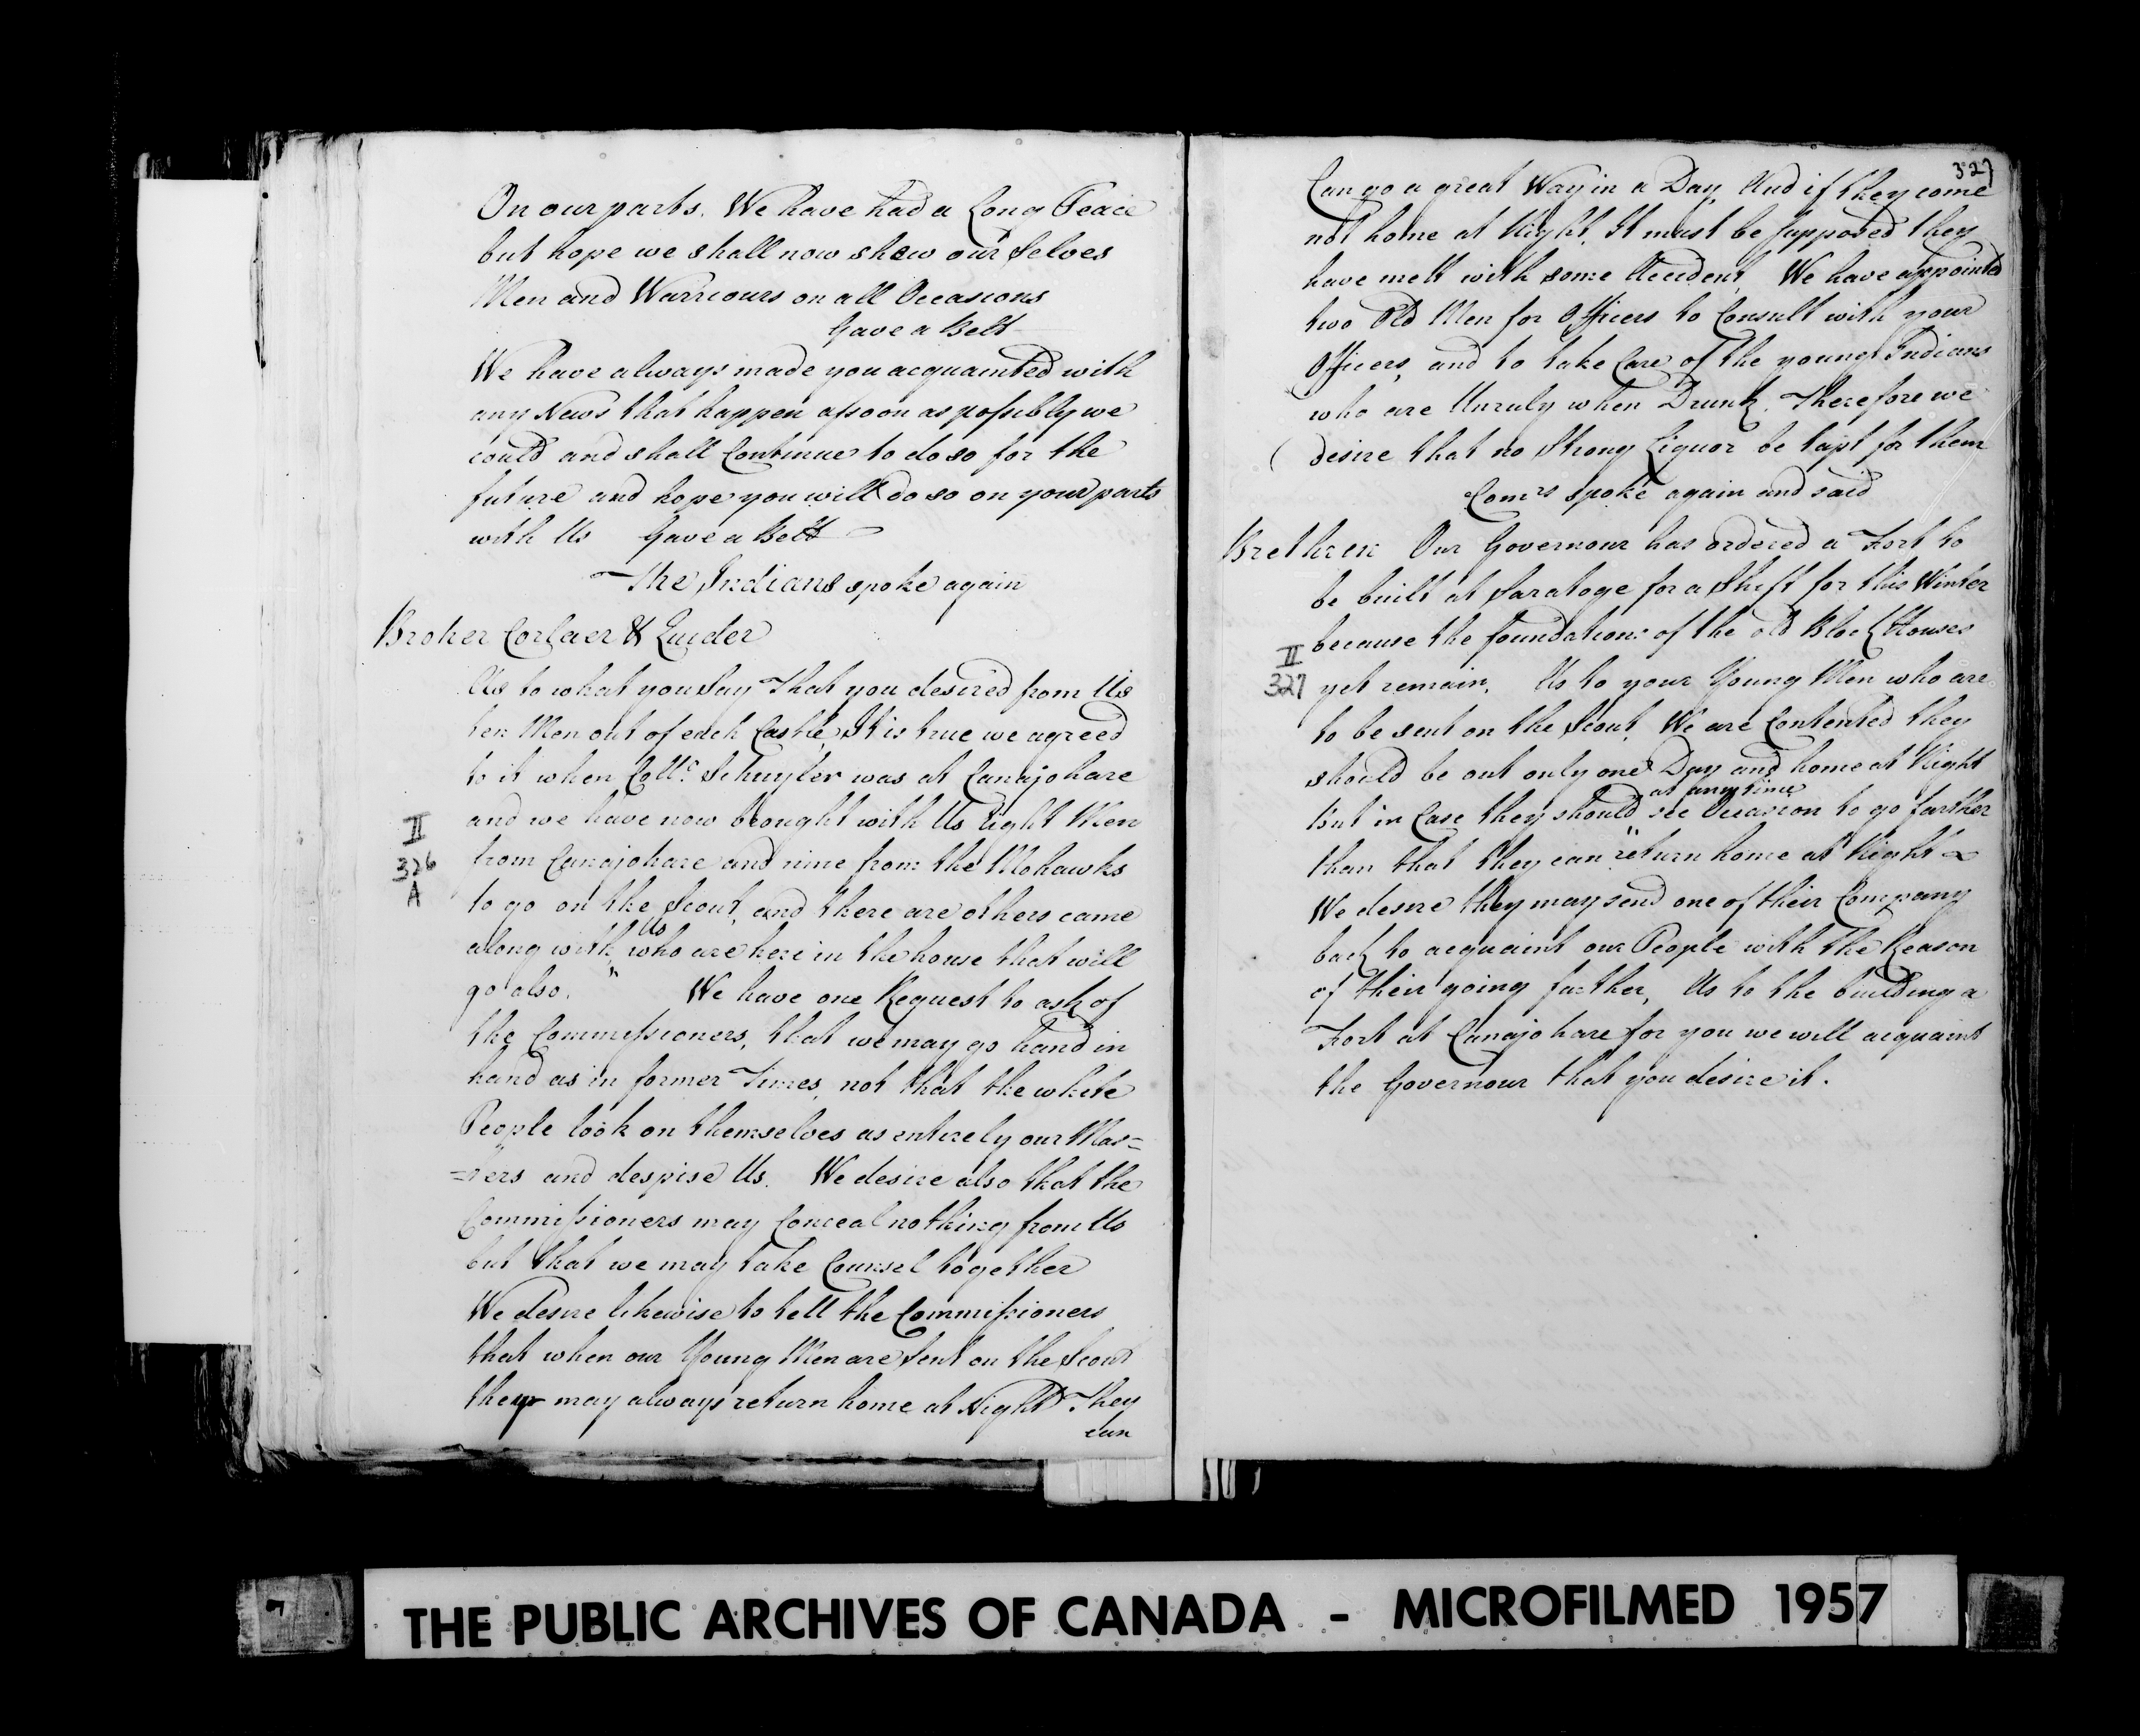 On our parts. We have had a Long Peace
but hope we shall now shew our Selves
Men and Warriours on all Occasions
Gave a Belt
We have always made you acquainted with
any News that happen assoon as possibly we
could and shall Continue to do so for the
future and hope you will do so on your parts
with Us Gave a Belt
The Indians spoke again
Broher Corlaer & Quider
As to what you Say That you desired from Us
ten Men out of each Castle, It is true we agreed
to it when Coll.o Schuyler was at Canajohare
and we have now brought with Us Eight Men
from Canajohare and nine from the Mohawks
II
326
A
to go on the Scout, and there are others came
Us
along with who are here in the house that will
go also. We have one Request to ask of
the Commissioners, that we may go hand in
hand as in former Times, not that the white
People look on themselves as entirely our Mas=
=ters and despise Us. We desire also that the
Commissioners may Conceal nothing from Us
but that we may take Counsel together
We desire likewise to tell the Commissioners
that when our Young Men are Sent on the Scout
they may always return home at Night They
can
327
Can go a great Way in a Day, And if they come
not home at Night, It must be Supposed they
have mett with some Accident, We have appointed
two Old Men for Officers to Consult with your
Officers, and to take Care of the young Indians
who are Unruly when Drunk, Therefore we
desire that no Strong Liquor be tapt for them
Comrs spoke again and said
Brethren Our Governour has ordered a Fort to
be built at Saratoge for a Shift for this Winter
because the foundations of the old Block Houses
II
327
yet remain, As to your Young Men who are
to be sent on the Scout, We are Contented they
should be out only one Day and home at Night
at any time
But in Case they should see Occasion to go farther
than that they can return home at Night
We desire they may send one of their Company
back to acquaint our People with the Reason
of their going farther, As to the building a
Fort at Canajohare for you we will acquaint
the Governour that you desire it.
THE PUBLIC ARCHIVES OF CANADA - MICROFILMED 1957